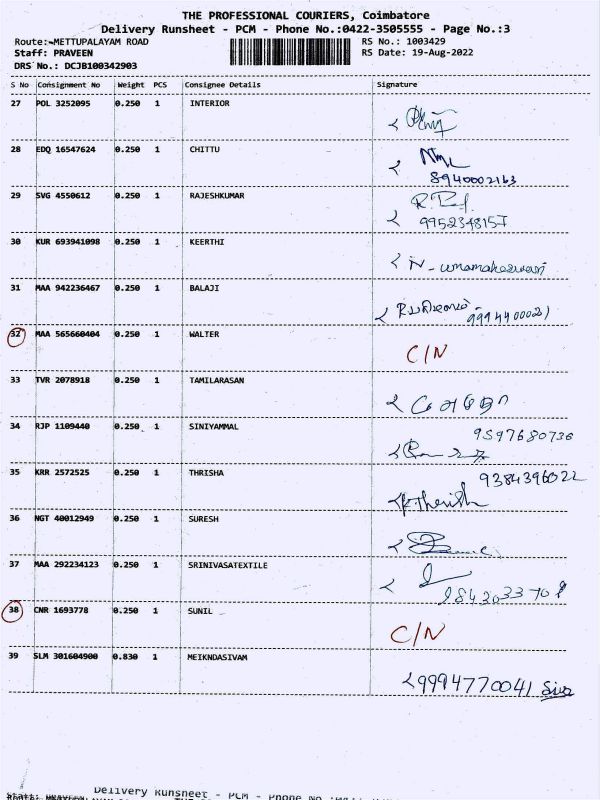 THE PROFESSIONAL COURIERS, Coimbatore
Delivery Runsheet - PCM - Phone No.:0422-3505555 - Page No.:3
Route:-METTUPALAYAM ROAD
Staff: PRAVEEN
DRS No.: DCJB100342903
RS No.: 1003429
RS Date: 19-Aug-2022
S No Consignment No Weight PCS Consignee Details Signature
27 POL 3252095 0.250 1 INTERIOR
28 EDQ 16547624 0.250 1 CHITTU
8940002163
29 SVG 4550612 0.250 1 RAJESHKUMAR
9952348157
30 KUR 693941098 0.250 1 KEERTHI
N - umamaheswari
31 MAA 942236467 0.250 1 BALAJI
9994400021
32 MAA 565660404 0.250 1 WALTER
C/N
33 TVR 2078918 0.250 1 TAMILARASAN
34 RJP 1109440 0.250 1 SINIYAMMAL
9597680736
35 KRR 2572525 0.250 1 THRISHA
9384396022
36 NGT 40012949 0.250 1 SURESH
37 MAA 292234123 0.250 1 SRINIVASATEXTILE
38 CNR 1693778 0.250 1 SUNIL
C/N
39 SLM 301604900 0.830 1 MEIKNDASIVAM
9994770041 Siva
Delivery Runsheet - PCM - Phone No